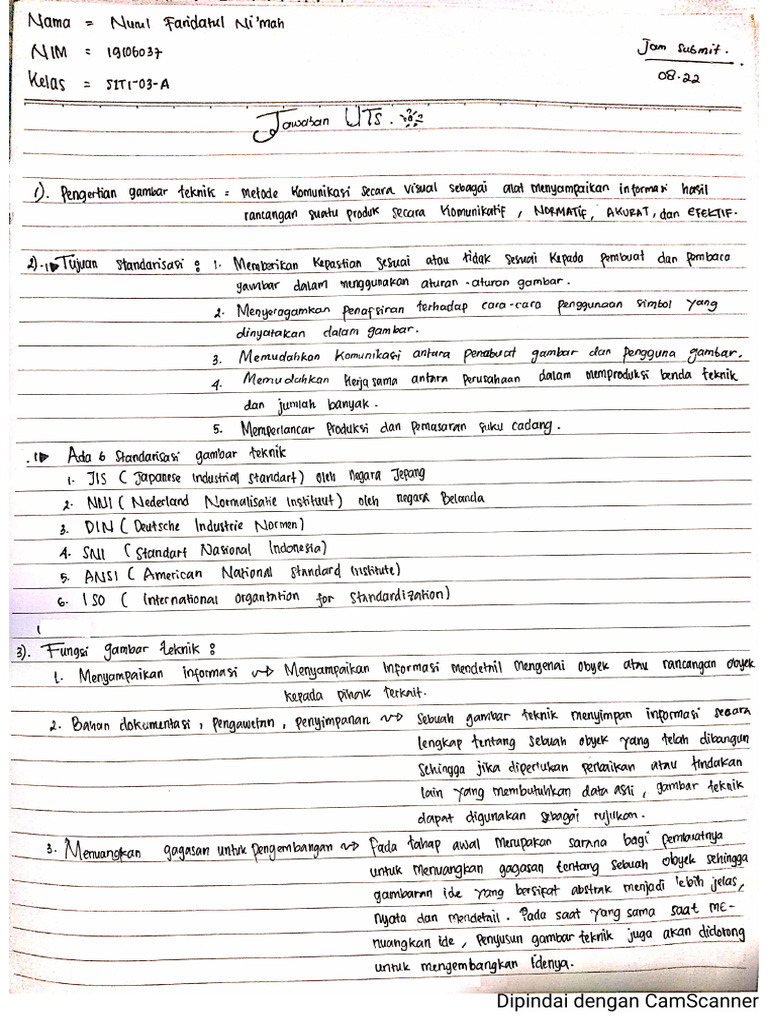 Nama = Nurul Faridatul Ni'mah
NIM = 19106037
Jam submit.
Kelas = SITI-03-A
08.22
Jawaban UTS.
1). Pengertian gambar teknik = metode komunikasi secara visual sebagai alat menyampaikan informasi hasil
rancangan suatu produk secara komunikatif, NORMATIF, AKURAT, dan EFEKTIF.
2). Tujuan standarisasi : 1. Memberikan kepastian sesuai atau tidak sesuai kepada pembuat dan pembaca
gambar dalam menggunakan aturan-aturan gambar.
2. Menyeragamkan penafsiran terhadap cara-cara penggunaan simbol yang
dinyatakan dalam gambar.
3. Memudahkan komunikasi antara penabuat gambar dan pengguna gambar.
4. Memudahkan kerja sama antara perusahaan dalam memproduksi benda teknik
dan jumlah banyak.
5. Memperlancar produksi dan pemasaran suku cadang.
Ada 6 standarisasi gambar teknik
1. JIS (Japanese Industrial Standart) oleh negara Jepang
2. NNI (Nederland Normalisatie Instituut) oleh negara Belanda
3. DIN (Deutsche Industrie Normen)
4. SNI (Standart Nasional Indonesia)
5. ANSI (American National Standard Institute)
6. ISO (International Organtation for Standardization)
3). Fungsi gambar teknik :
1. Menyampaikan informasi ~> Menyampaikan informasi mendetnil mengenai obyek atau rancangan obyek
kepada pihak terkait.
2. Bahan dokumentasi, pengawetan, penyimpanan ~> Sebuah gambar teknik menyimpan informasi secara
lengkap tentang sebuah obyek yang telah dibangun
sehingga jika diperlukan perbaikan atau tindakan
lain yang membutuhkan data asli, gambar teknik
dapat digunakan sebagai rujukan.
3. Menuangkan gagasan untuk pengembangan ~> Pada tahap awal merupakan sarana bagi pembuatnya
untuk menuangkan gagasan tentang sebuah obyek sehingga
gambaran ide yang bersifat abstrak menjadi lebih jelas,
nyata dan mendetail. Pada saat yang sama saat me-
nuangkan ide, penyusun gambar teknik juga akan didorong
untuk mengembangkan idenya.
Dipindai dengan CamScanner